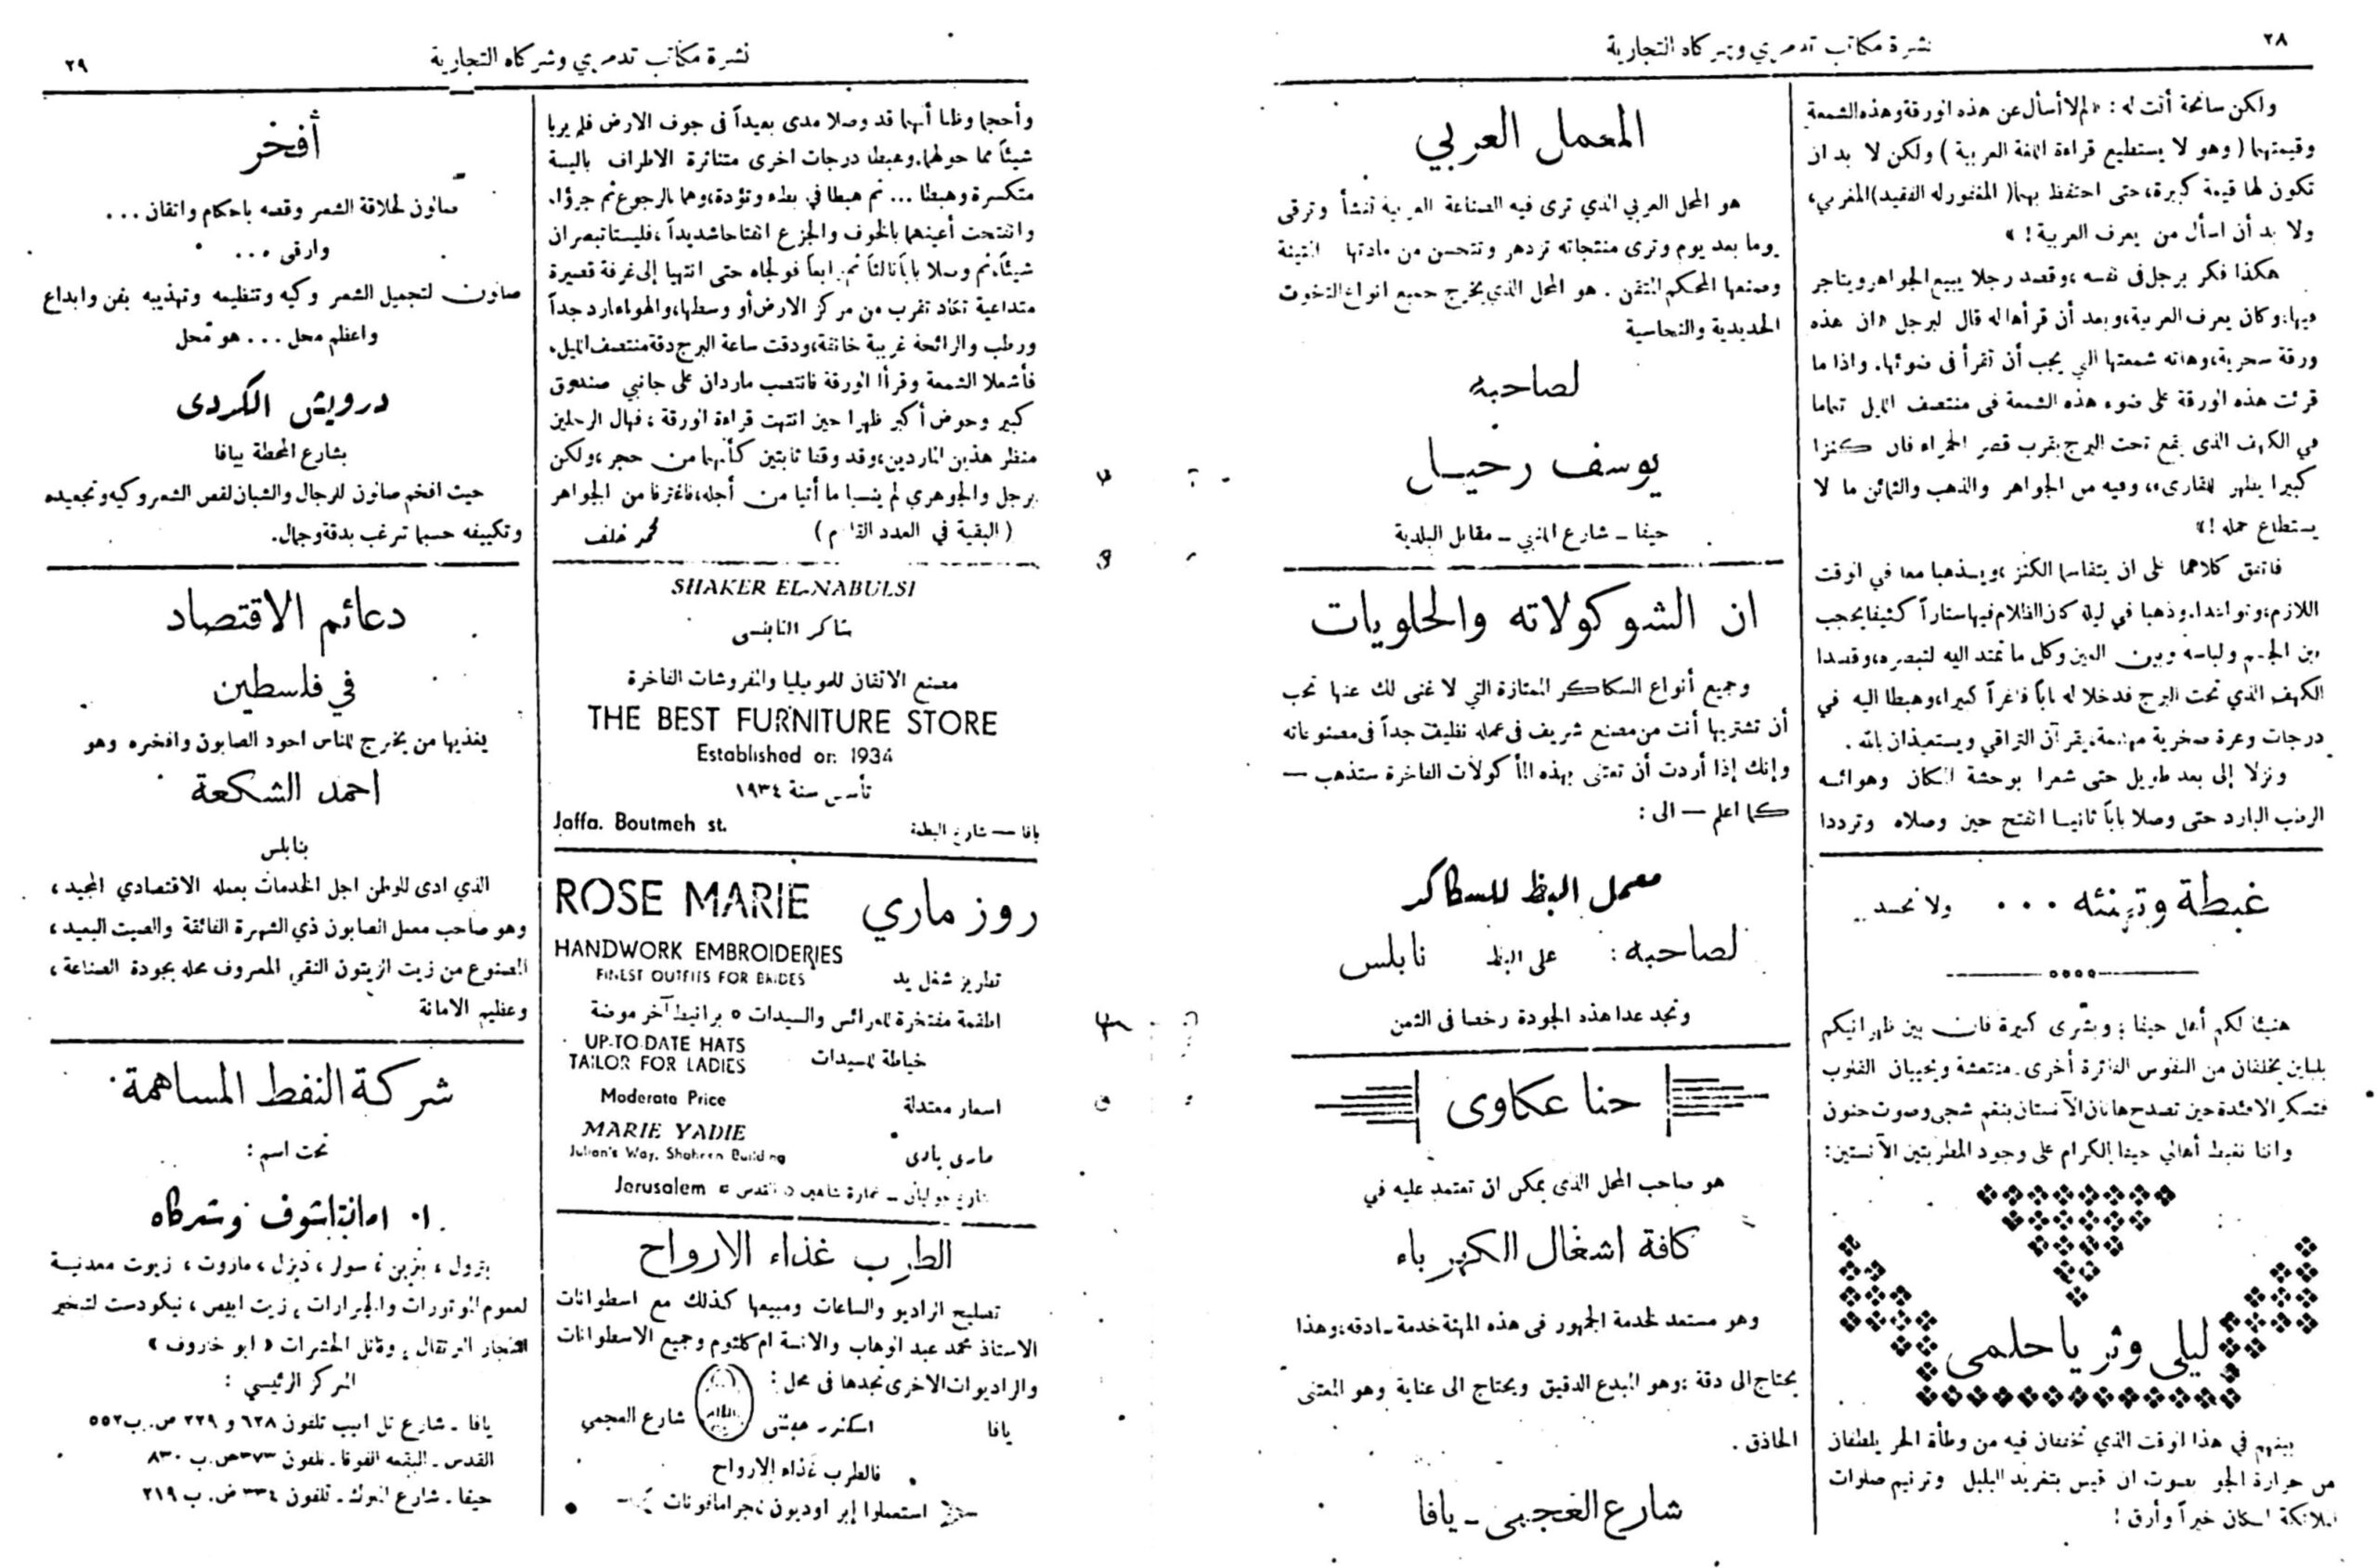 ٢٨
نشرة مكاتب تدمري وشركاه التجارية
ولكن سانحة أتت له : «لم لا أسأل عن هذه الورقة وهذه الشمعة
وقيمتهما ( وهو لا يستطيع قراءة اللغة العربية ) ولكن لا بد ان
تكون لها قيمة كبيرة، حتى احتفظ بهما ( المغفور له الفقيد ) المغربي،
ولا بد أن اسأل من يعرف العربية ! »
هكذا فكر برجل فى نفسه ، وقصد رجلا يبيع الجواهر ويتاجر
فيها، وكان يعرف العربية، وبعد أن قرأها له قال لبرجل «ان هذه
ورقة سحرية، وهاته شمعتها التي يجب أن تقرأ فى ضوئها. واذا ما
قرئت هذه الورقة على ضوء هذه الشمعة فى منتصف الليل تماما
في الكهف الذى يقع تحت البرج بقرب قصر الحمراء فان كنزا
كبيرا يظهر للقارىء، وفيه من الجواهر والذهب والثمائن ما لا
يستطاع حمله !»
فاتفق كلاهما على ان يتقاسما الكنز ، ويذهبا معا في الوقت
اللازم، وتواعدا. وذهبا في ليلة كان الظلام فيها ستاراً كثيفا يحجب
بين الجسم ولباسه وبين العين وكل ما تمتد اليه لتبصره، وقصدا
الكهف الذي تحت البرج فدخلا له باباً فاغراً كبيرا، وهبطا اليه في
درجات وعرة صخرية مهدمة، يقرآن التراقي ويستعيذان بالله .
ونزلا إلى بعد طويل حتى شعرا بوحشة المكان وهوائه
الرطب البارد حتى وصلا باباً ثانيا انفتح حين وصلاه وترددا
غبطة وتهنئه ... ولا نحسد ..
هنيئا لكم أهل حيفا ؛ وبشرى كبيرة فان بين ظهرانيكم
بلبلين يخلقان من النفوس الفاترة أخرى منتعشة ويحييان القلوب
فتسكر الافئدة حين تصدح هاتان الآنستان بنغم شجى وصوت حنون
واننا نغبط أهالي حيفا الكرام على وجود المطربتين الآنستين :
ليلى وثريا حلمى
بينهم في هذا الوقت الذي تخففان فيه من وطأة الحر يلطفان
من حرارة الجو بصوت ان قيس بتغريد البلبل وترنيم صلوات
الملائكة لكان خيراً وأرق !
المعمل العربي
هو المحل العربي الذي ترى فيه الصناعة العربية تنشأ وترقى
يوما بعد يوم وترى منتجاته تزدهر وتتحسن من مادتها المتينة
وصنعها المحكم المتقن . هو المحل الذي يخرج جميع انواع التخوت
الحديدية والنحاسية
لصاحبه
يوسف رحيل
حيفا - شارع اللنبي - مقابل البلدية
ان الشوكولاته والحلويات
وجميع أنواع السكاكر الممتازة التي لا غنى لك عنها تحب
أن تشتريها أنت من مصنع شريف فى عمله نظيف جداً فى مصنوعاته
وإنك إذا أردت أن تعتنى بهذه المأكولات الفاخرة ستذهب —
كما اعلم — الى :
معمل البظ للسكاكر
لصاحبه : على البظ نابلس
وتجد عدا هذه الجودة رخصا فى الثمن
حنا عكاوى
هو صاحب المحل الذى يمكن ان تعتمد عليه في
كافة اشغال الكهرباء
وهو مستعد لخدمة الجمهور فى هذه المهنة خدمة صادقه، وهذا
يحتاج الى دقة : وهو المبدع الدقيق ويحتاج الى عناية وهو المعتنى
الحاذق .
شارع العجمي - يافا
نشرة مكاتب تدمري وشركاه التجارية
٢٩
وأحجما وظنا أنهما قد وصلا مدى بعيداً فى جوف الارض فلم يريا
شيئاً مما حولهما، وهبطا درجات اخرى متناثرة الاطراف بالية
متكسرة وهبطا ... ثم هبطا في بطء وتؤدة، وهما بالرجوع ثم جرؤا.
وانفتحت أعينهما بالخوف والجزع انفتاحا شديداً ، فليستا تبصران
شيئاً، ثم وصلا باباً ثالثاً ثم رابعاً فولجاه حتى انتهيا إلى غرفة قصيرة
متداعية تكاد تقرب من مركز الارض أو وسطها، والهواء بارد جداً
ورطب والرائحة غريبة خانقة، ودقت ساعة البرج دقة منتصف الليل.
فأشعلا الشمعة وقرأا الورقة فانتصب ماردان على جانبي صندوق
كبير وحوض أكبر ظهرا حين انتهت قراءة الورقة ، فهال الرجلين
منظر هذين الماردين، وقد وقفا ثابتين كأنهما من حجر ، ولكن
برجل والجوهري لم ينسيا ما أتيا من أجله، فاغترفا من الجواهر
( البقية في العدد القادم ) محمد خلف
SHAKER EL-NABULSI
شاكر النابلسى
مصنع الاتقان للموبيليا والمفروشات الفاخرة
THE BEST FURNITURE STORE
Established on 1934
تأسس سنة ١٩٣٤
Jaffa. Boutmeh st. يافا — شارع البطمة
ROSE MARIE روز ماري
HANDWORK EMBROIDERIES
FINEST OUTFITS FOR BRIDES تطاريز شغل يد
اطقمة مفتخرة للعرائس والسيدات ٥ برانيط آخر موضة
UP-TO DATE HATS
TAILOR FOR LADIES خياطة للسيدات
Moderate Price اسعار معتدلة
MARIE YADIE
Julian's Way, Shaheen Building مارى يادى
Jerusalem شارع جوليان - عمارة شاهين ٥ القدس
الطرب غذاء الارواح
تصليح الراديو والساعات ومبيعها كذلك مع اسطوانات
الاستاذ محمد عبد الوهاب والانسة ام كلثوم وجميع الاسطوانات
والراديوات الاخرى تجدها فى محل :
يافا اسكندر شارع العجمي
فالطرب غذاء الارواح
استعملوا إبر اوديون لجرامافونات
أفخر
صالون لحلاقة الشعر وقصه باحكام واتقان ...
وارقى ...
صالون لتجميل الشعر وكيه وتنظيمه وتهذيبه بفن وابداع
واعظم محل ... هو محل
درويش الكردى
بشارع المحطة بيافا
حيث افخم صالون للرجال والشبان لقص الشعر وكيه وتجعيده
وتكييفه حسبما ترغب بدقة وجمال.
دعائم الاقتصاد
في فلسطين
يغذيها من يخرج للناس اجود الصابون وافخره وهو
احمد الشكعة
بنابلس
الذي ادى للوطن اجل الخدمات بعمله الاقتصادي المجيد ،
وهو صاحب معمل الصابون ذي الشهرة الفائقة والصيت البعيد ،
المصنوع من زيت الزيتون النقي المعروف محله بجودة الصناعة ،
وعظيم الامانة
شركة النفط المساهمة
تحت اسم :
وشركاه
بترول ، بنزين ، سولر ، ديزل ، مازوت ، زيوت معدنية
لعموم الموتورات والجرارات ، زيت ابيض ، نيكودست لتبخير
اشجار البرتقال ، وقاتل الحشرات « ابو خاروف »
المركز الرئيسي :
يافا - شارع تل ابيب تلفون ٦٢٨ و ٢٢٩ ص. ب ٥٥٢
القدس - البقعه الفوقا - تلفون ص. ب ٨٣٠
حيفا - شارع الملوك - تلفون ٣٣٤ ص. ب ٢١٩